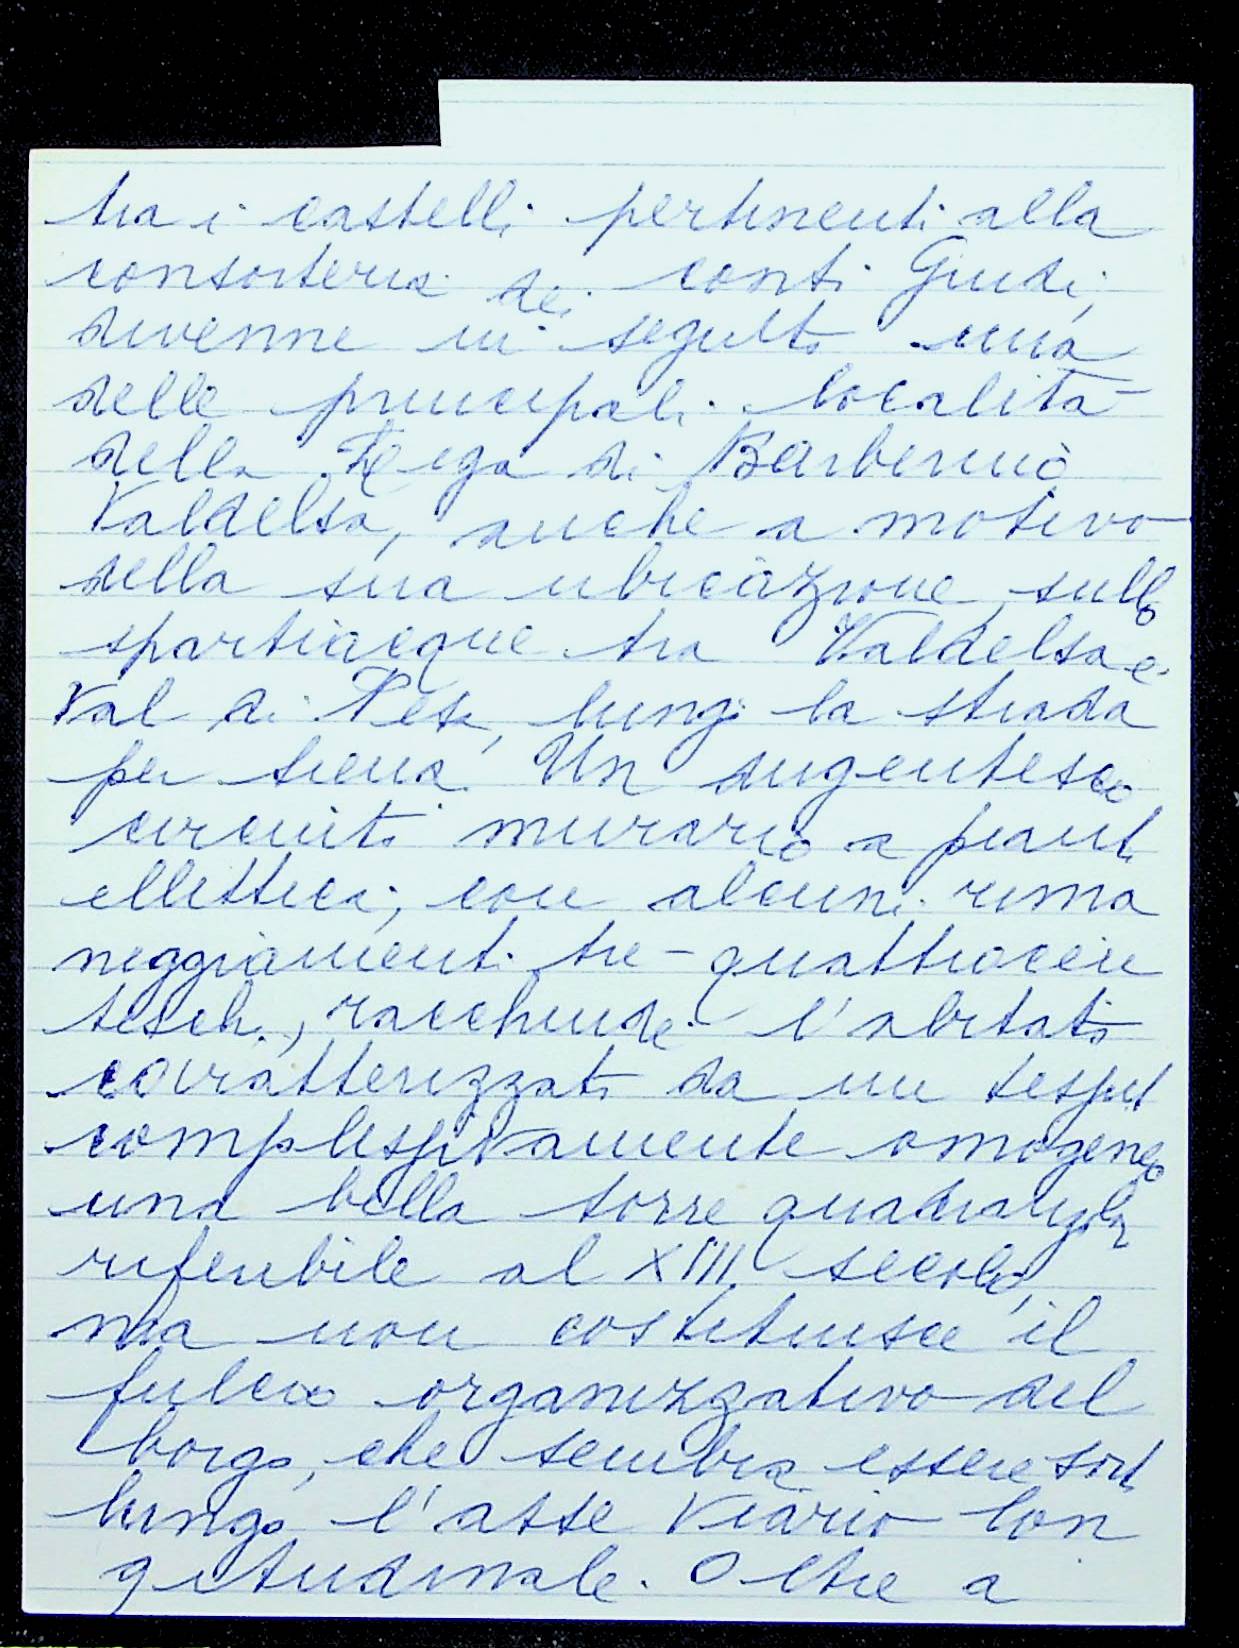 tra i castelli pertinenti alla
consorteria dei conti Guidi,
divenne in seguito una
delle principali località
della Lega di Barberino
Valdelsa, anche a motivo
della sua ubicazione, sullo
spartiacque tra Valdelsa e
Val di Pesa, lungo la strada
per Siena. Un dugentesco
circuito murario a pianta
ellittica, con alcuni rima
neggiamenti tre-quattrocen
teschi, racchiude l'abitato
caratterizzato da un tessut
complessivamente omogeneo
una bella torre quadrangola
riferibile al XIII secolo,
ma non costituisce il
fulcro organizzativo del
borgo, che sembra essere sort
lungo l'asse viario lon
gitudinale. Oltre a